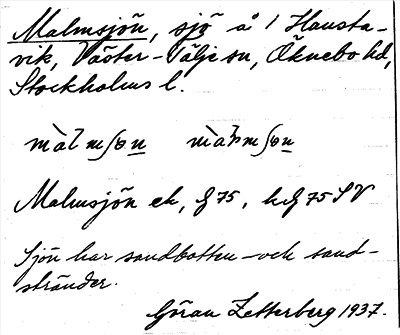 Malmsjön, sjö å 1 Hausta-
vik, Väster-Tälje sn, Öknebo hd,
Stockholms l.
màlmʃɵn màɬmʃɵn
Malmsjön ek, G 75, hG 75 SV
Sjön har sandbotten och sand-
stränder.
Göran Zetterberg 1937.